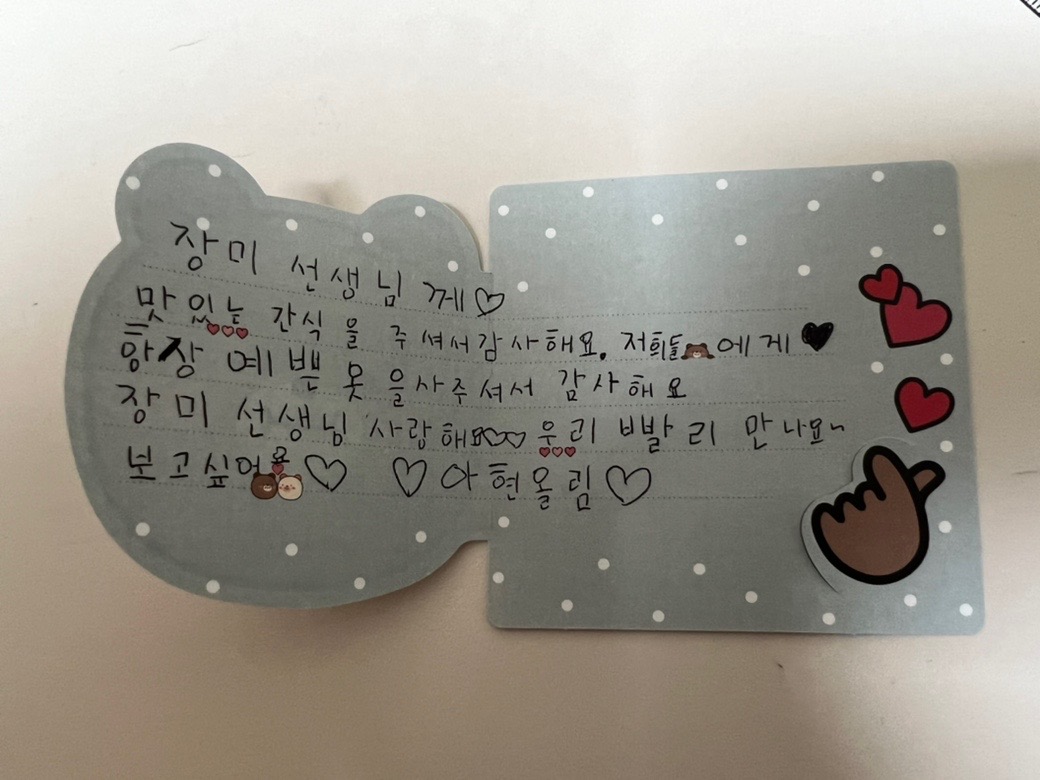 장미 선생님 께♡
맛있는 간식을 주셔서감사해요. 저희들에게 ♥
항상 예쁜 옷을사주셔서 감사해요
장미 선생님 사랑해요♡♡ 우리 빠발리 만나요~
보고싶어요♡ ♡아현올림♡